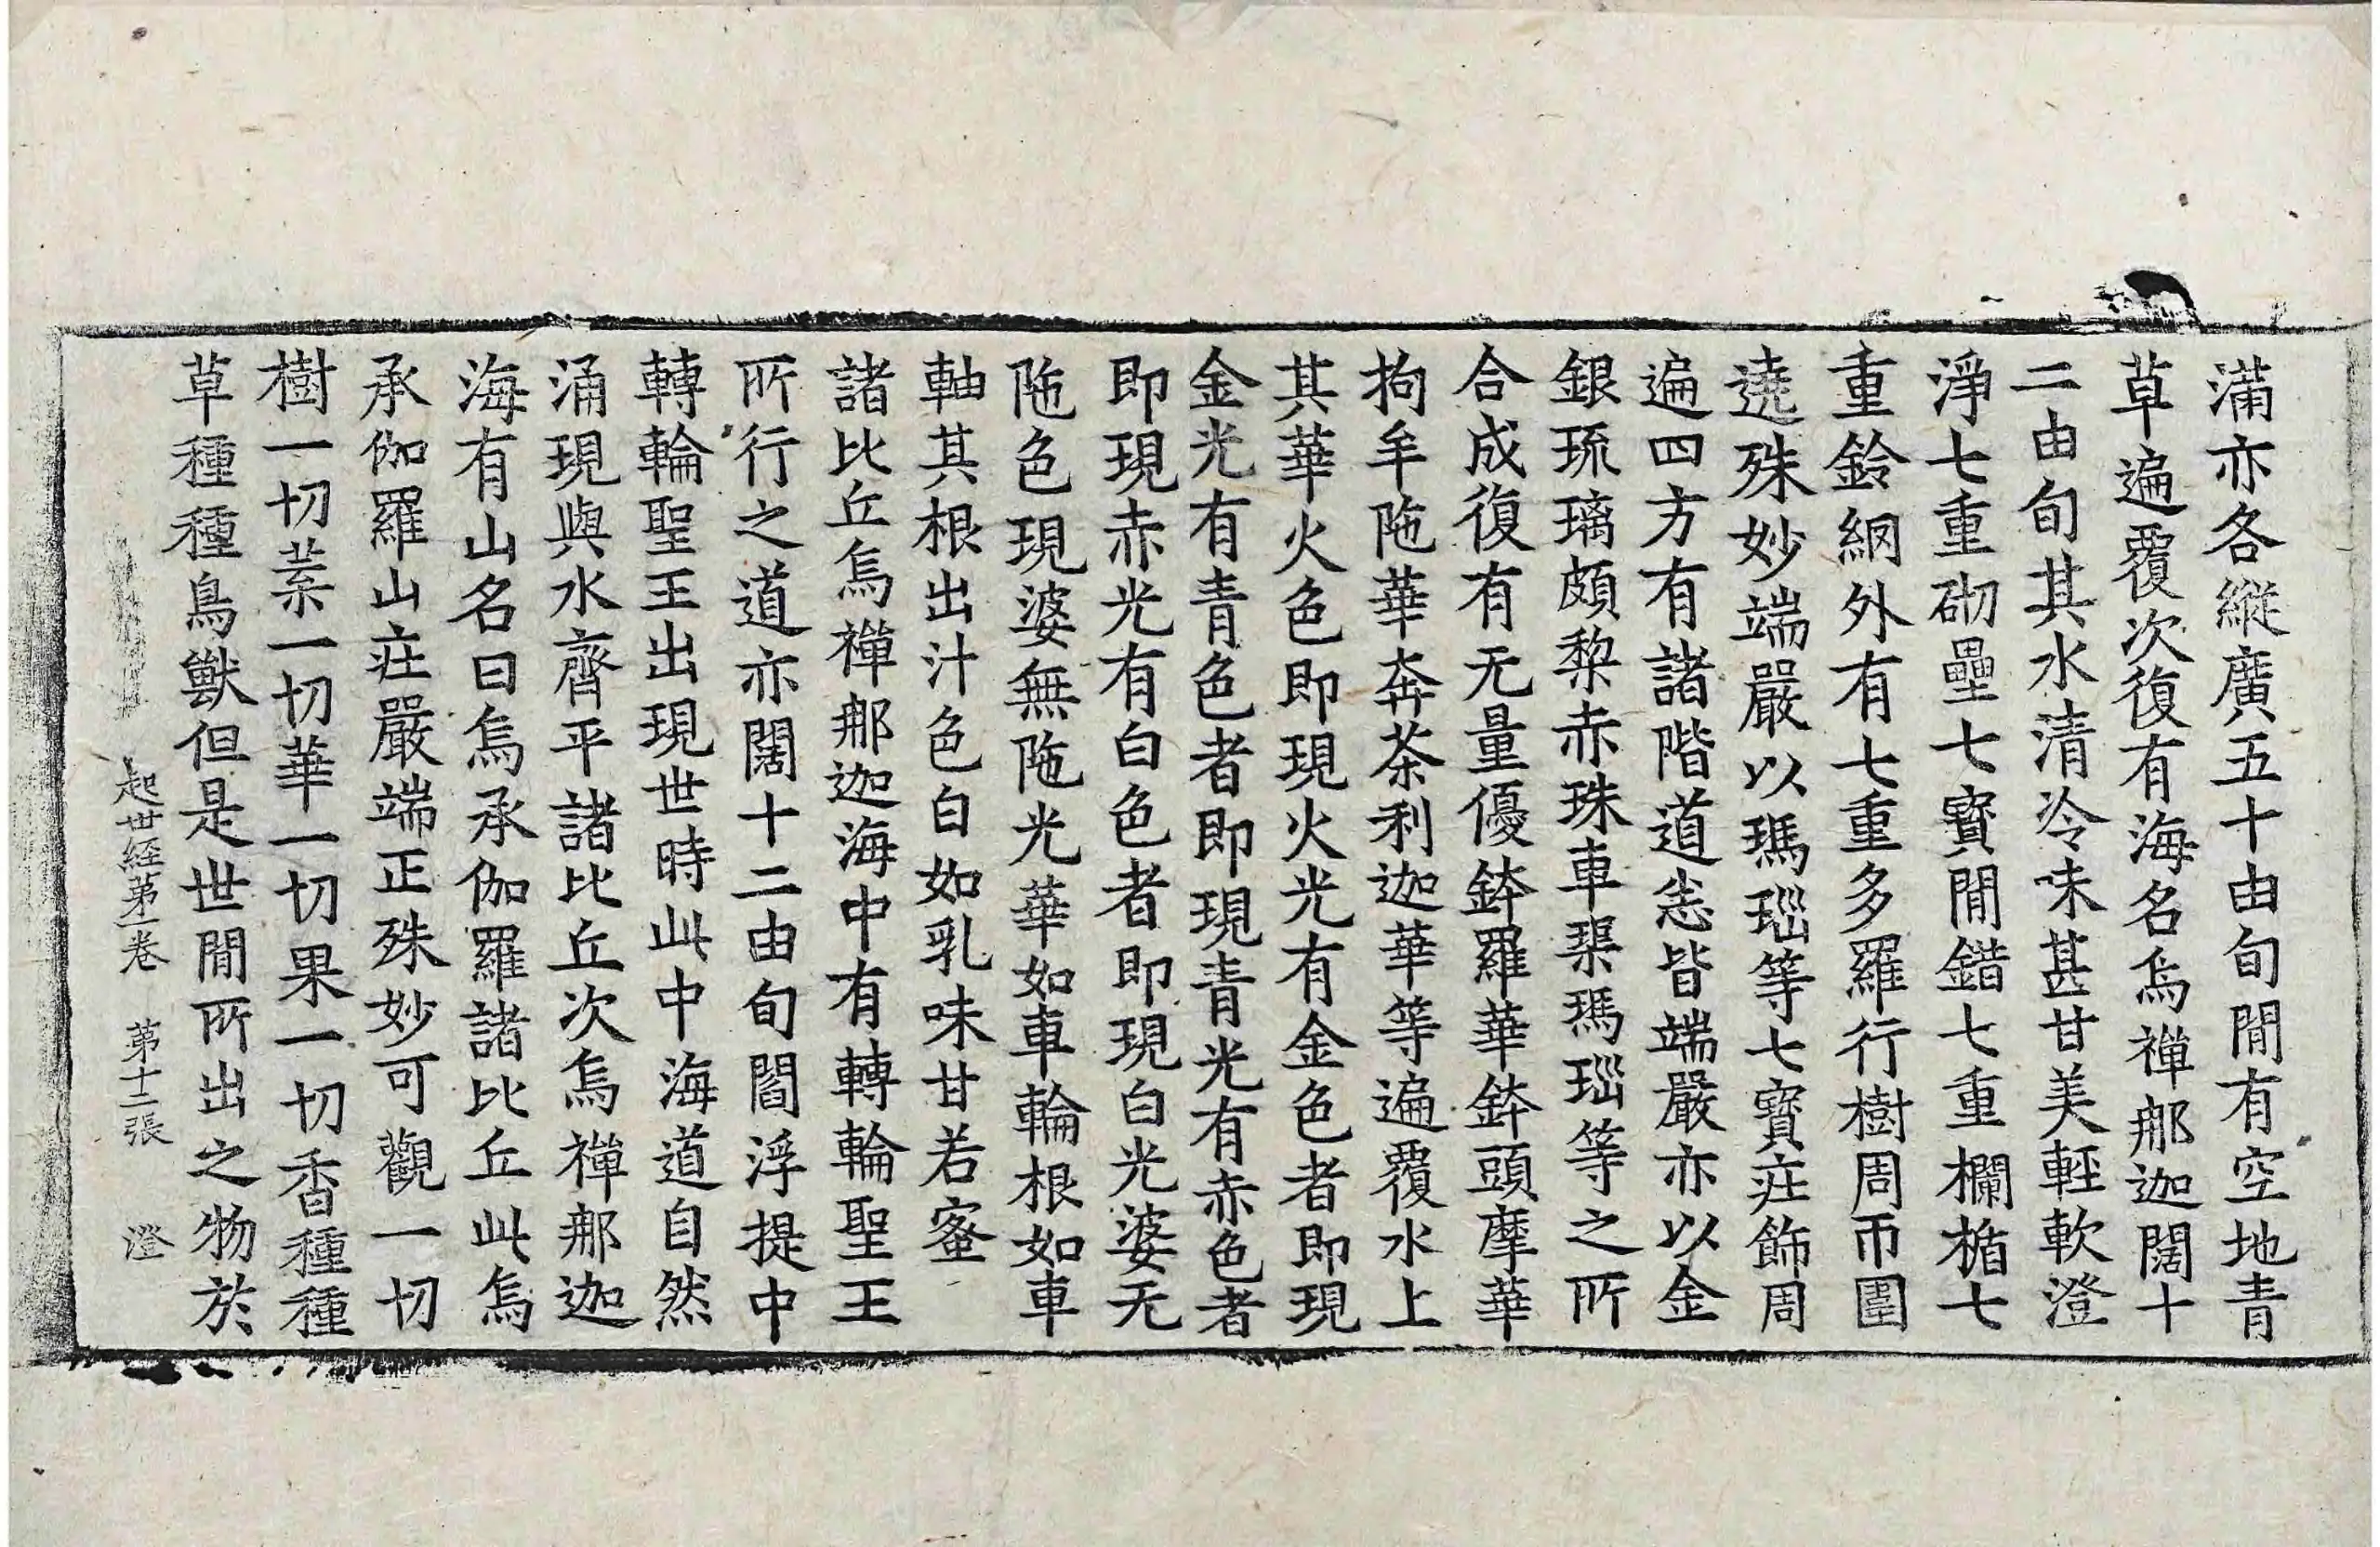 滿亦各縱廣五十由旬閒有空地青
草遍覆次復有海名烏禪那迦闊十
二由旬其水清冷味甚甘美輕軟澄
淨七重砌壘七寶閒錯七重欄楯七
重鈴網外有七重多羅行樹周帀圍
遶殊妙端嚴以瑪瑙等七寶莊飾周
遍四方有諸階道悉皆端嚴亦以金
銀琉璃頗梨赤珠車璖瑪瑙等之所
合成復有无量優鉢羅華鉢頭摩華
拘牟陁華奔茶利迦華等遍覆水上
其華火色即現火光有金色者即現
金光有青色者即現青光有赤色者
即現赤光有白色者即現白光婆无
陁色現婆無陁光華如車輪根如車
軸其根出汁色白如乳味甘若蜜
諸比丘烏禪那迦海中有轉輪聖王
所行之道亦闊十二由旬閻浮提中
轉輪聖王出現世時此中海道自然
涌現與水齊平諸比丘次烏禪那迦
海有山名曰烏承伽羅諸比丘此烏
承伽羅山莊嚴端正殊妙可觀一切
樹一切葉一切華一切果一切香種種
草種種鳥獸但是世閒所出之物於
起世経第一卷　第十二張　澄